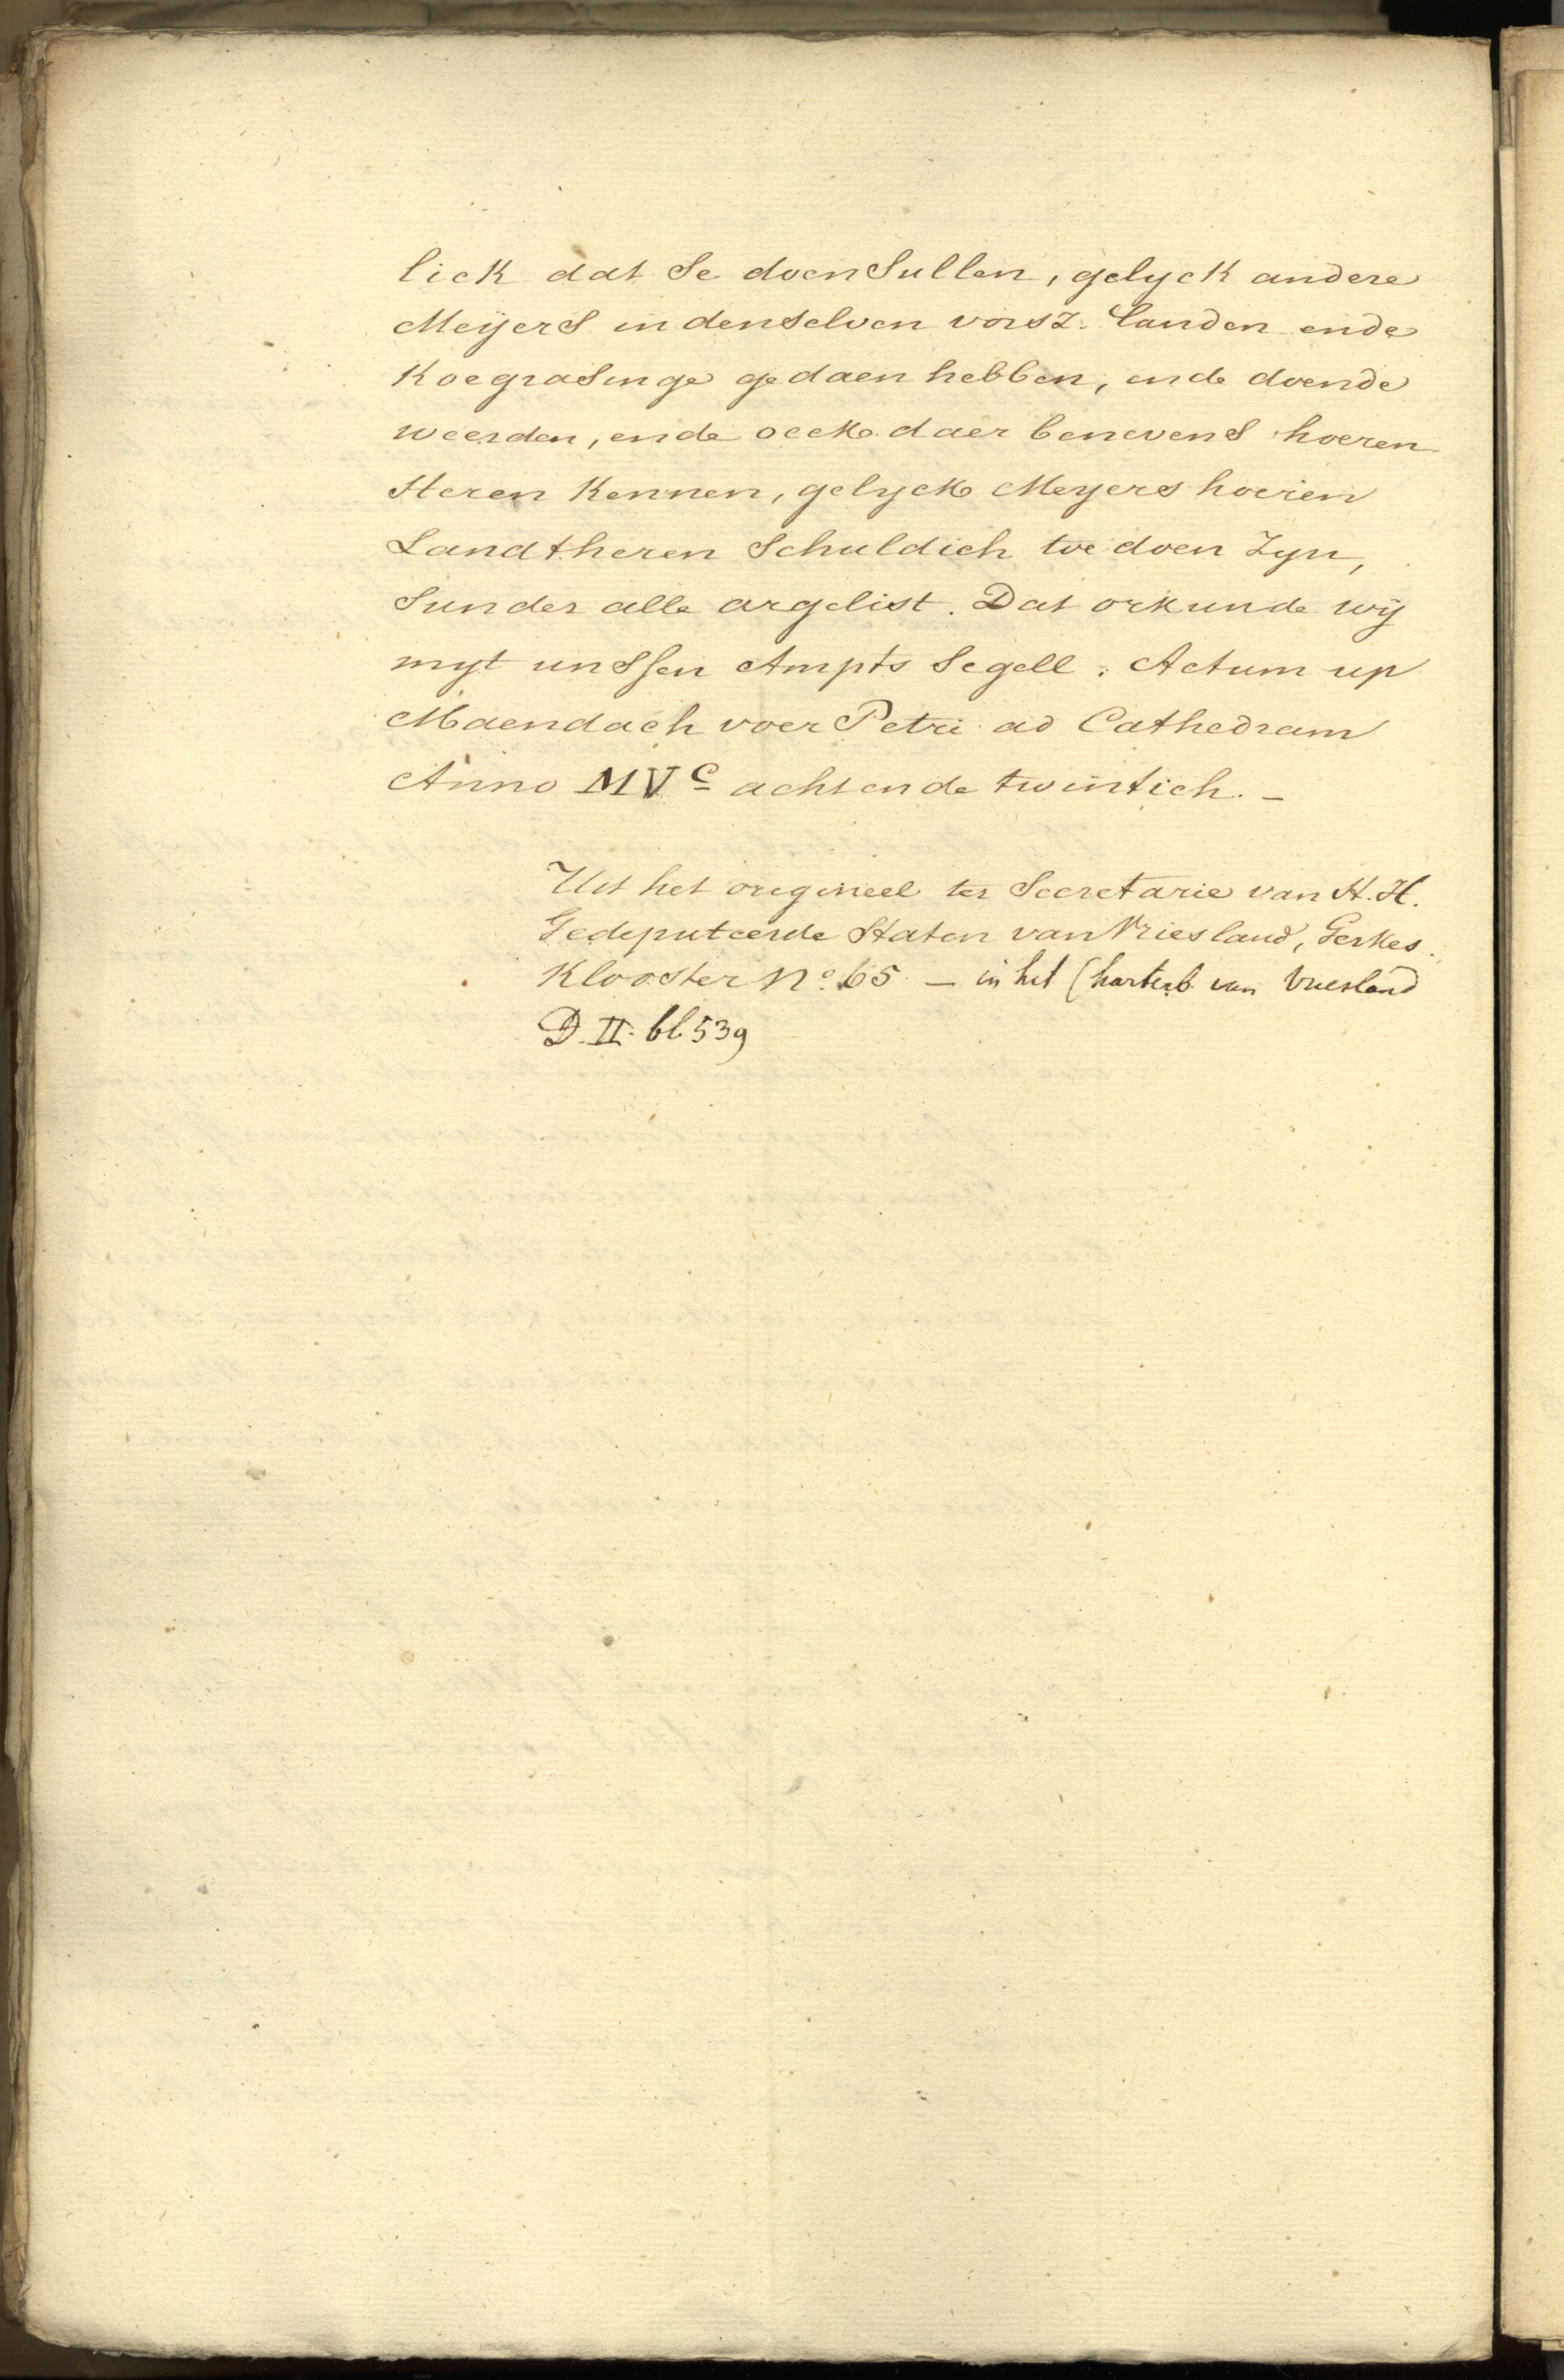 lick dat Se doen Sullen, gelyck andere
Meÿers in denselven vorsz. landen ende
Koegrasinge gedaen hebben, ende doende
weerden, ende oeck daer benevens hoeren
Heren Kennen, gelyck Meyers hoeren
Landtheren Schuldich toe doen Zyn,
Sunder alle argelist. Dat orkunde wÿ
myt unssen Ampts Segell. Actum up
Maendach voer Petri ad Cathedram
Anno MVc achtende twintich. _
Uit het origineel ter Secretarie van H.H.
Gedeputeerde Staten van Vriesland, Gerkes
Klooster No. 65 — in het Charterb van Vriesland
D. II. bl 539